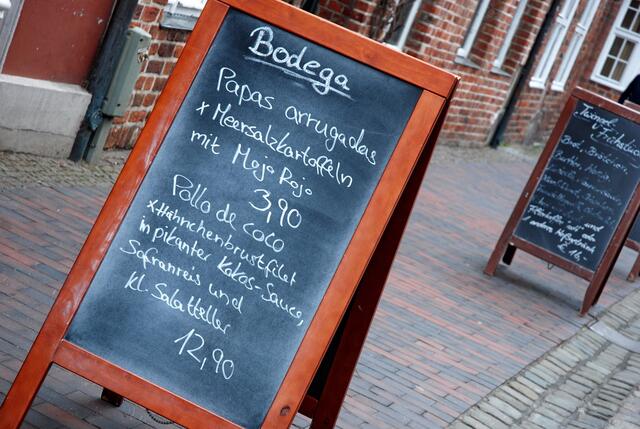 Bodega
Papas arrugadas
x Meersalzkartoffeln
mit Mojo Rojo
3,90
Pollo de coco
x Hähnchenbrustfilet
in pikanter Kokos-Sauce,
Safranreis und
kl. Salatteller
12,90
Frühstück
und
€ 16,